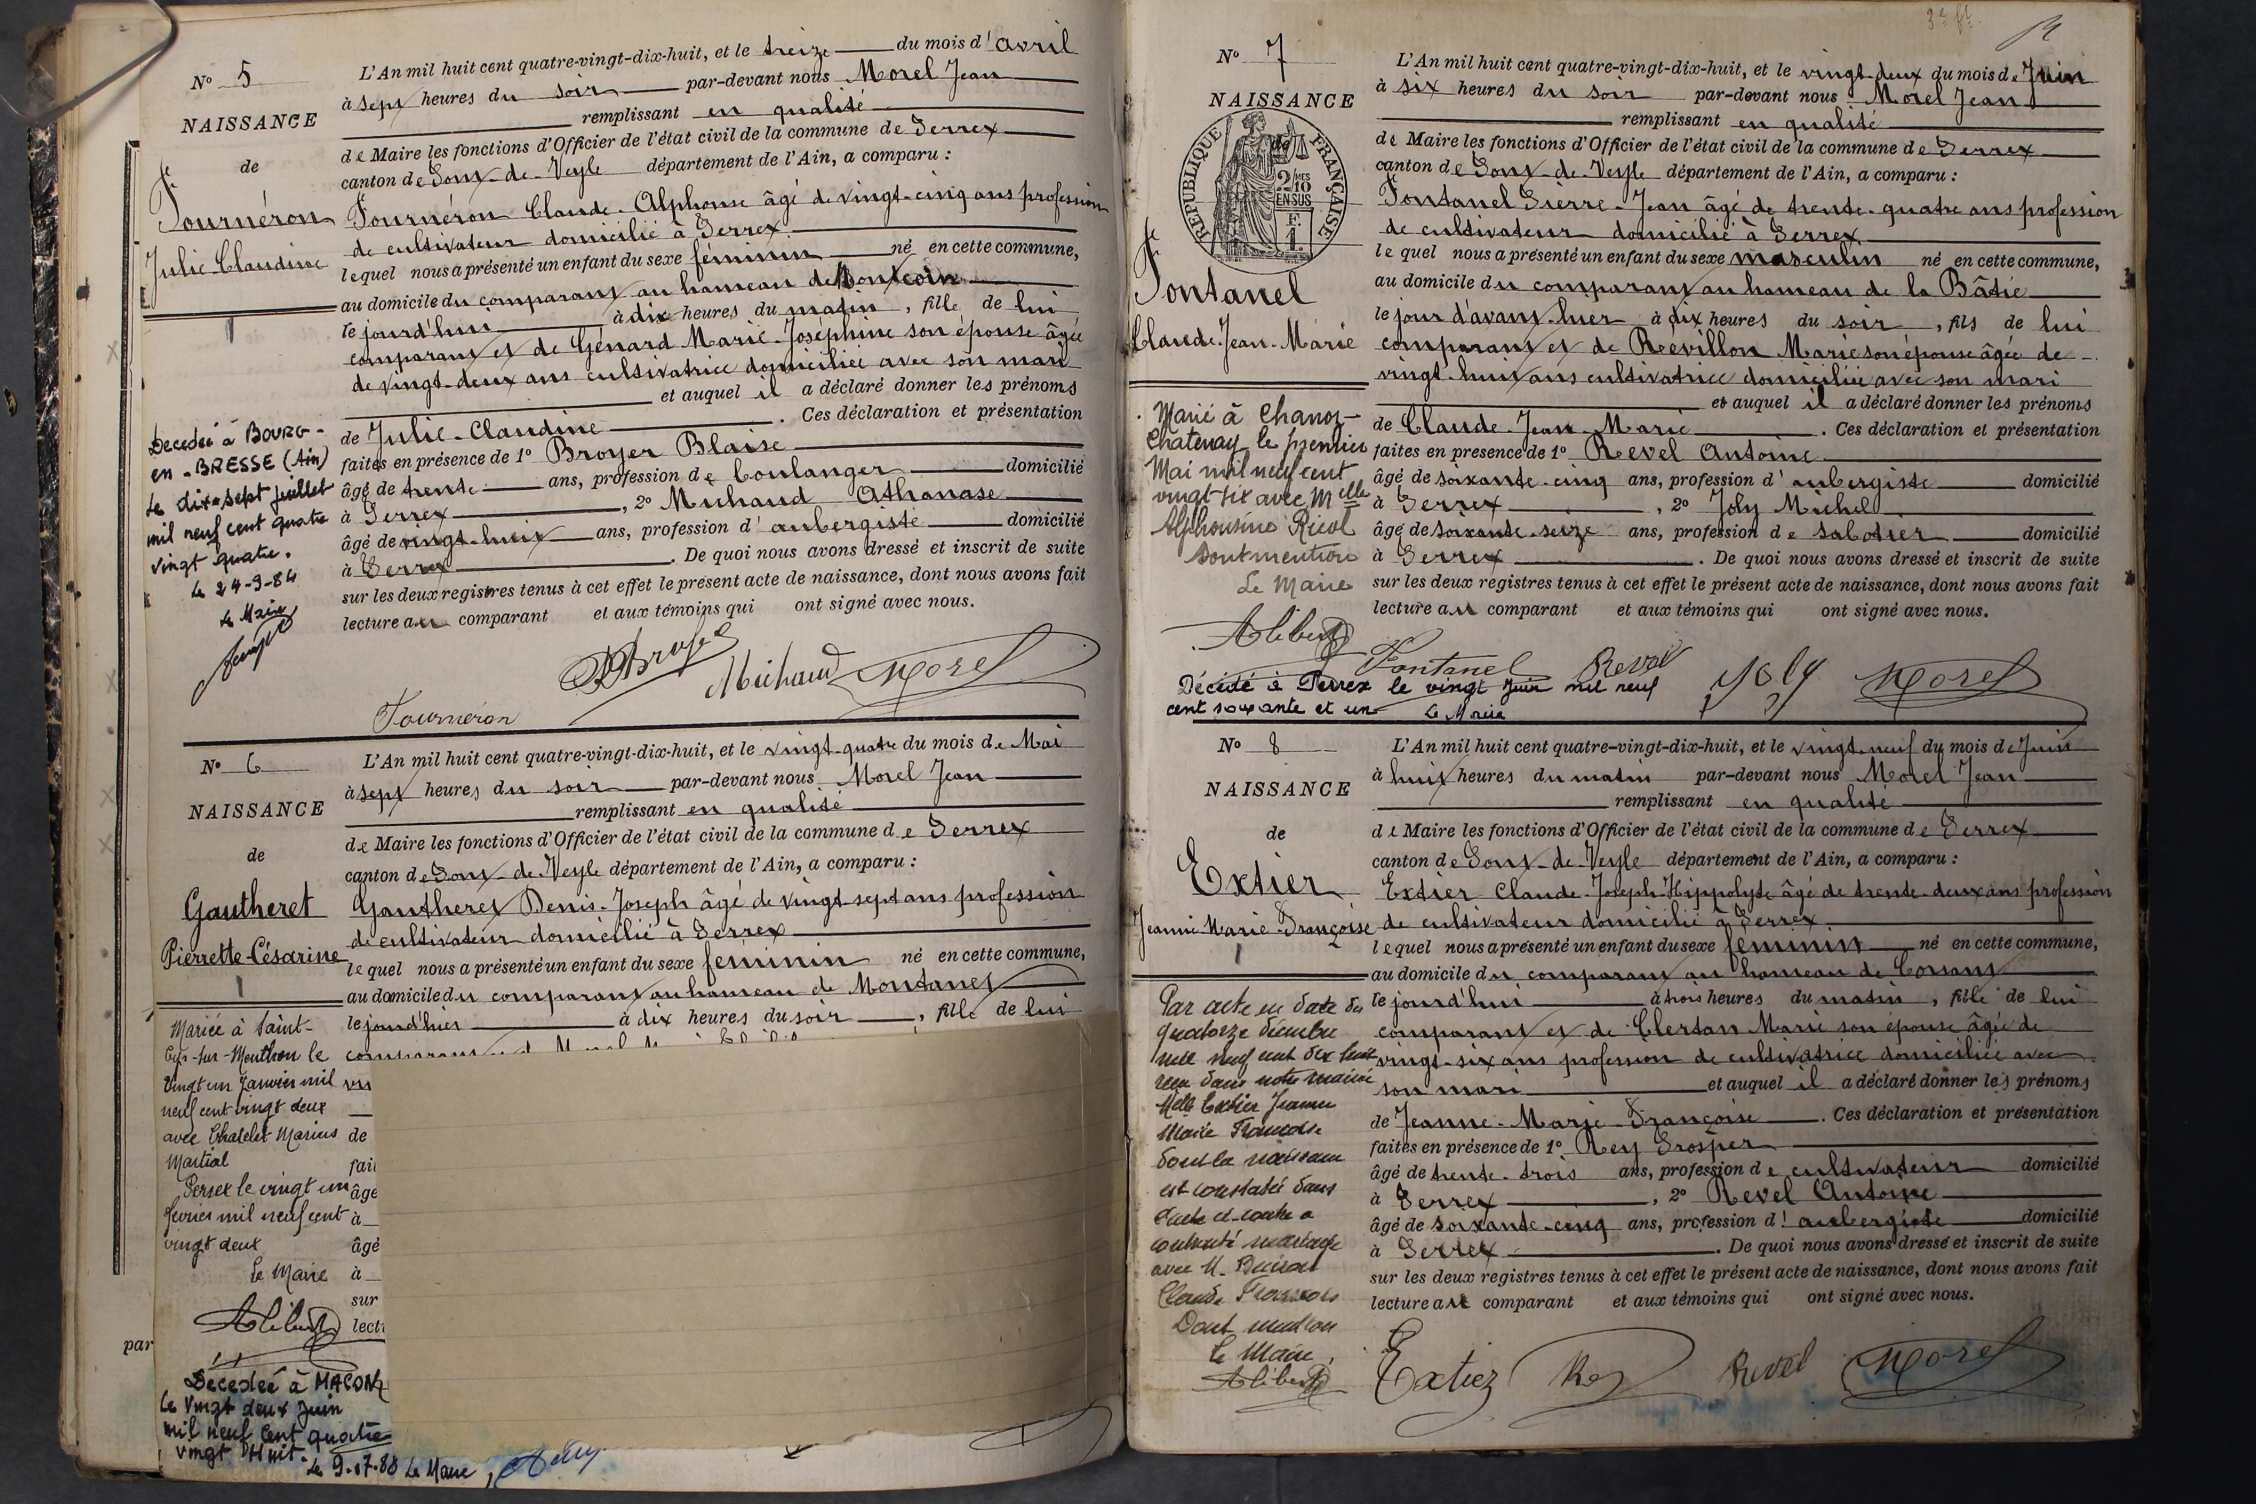 N° 5
NAISSANCE
de
Fournéron
Julie Claudine
L'An mil huit cent quatre-vingt-dix-huit, et le treize du mois d'avril
à sept heures du soir par-devant nous Morel Jean
remplissant en qualité
de Maire les fonctions d'Officier de l'état civil de la commune de Perrex
canton de Pont-de-Veyle département de l'Ain, a comparu :
Fournéron Claude-Alphonse âgé de vingt-cinq ans profession
de cultivateur domicilié à Perrex
lequel nous a présenté un enfant du sexe féminin né en cette commune,
au domicile du comparant au hameau de
le jourd'hui à dix heures du matin, fille de lui
comparant et de Génard Marie-Joséphine son épouse âgée
de vingt-deux ans cultivatrice domiciliée avec son mari
et auquel il a déclaré donner les prénoms
de Julie-Claudine. Ces déclaration et présentation
faites en présence de 1° Broyer Blaise
âgé de trente ans, profession de boulanger domicilié
à Perrex, 2° Michaud Athanase
âgé de vingt-huit ans, profession d'aubergiste domicilié
à Perrex. De quoi nous avons dressé et inscrit de suite
sur les deux registres tenus à cet effet le présent acte de naissance, dont nous avons fait
lecture au comparant et aux témoins qui ont signé avec nous.
Decedée à BOURG-
en-BRESSE (Ain)
Le dix-sept juillet
mil neuf cent quatre
vingt quatre.
le 24-9-84
Le Maire
Broyer
Michaud
Morel
Fournéron
N° 6
NAISSANCE
de
Gautheret
Pierrette-Césarine
L'An mil huit cent quatre-vingt-dix-huit, et le vingt-quatre du mois de Mai
à sept heures du soir par-devant nous Morel Jean
remplissant en qualité
de Maire les fonctions d'Officier de l'état civil de la commune de Perrex
canton de Pont-de-Veyle département de l'Ain, a comparu :
Gautheret Denis-Joseph âgé de vingt-sept ans profession
de cultivateur domicilié à Perrex
lequel nous a présenté un enfant du sexe féminin né en cette commune,
au domicile du comparant au hameau de Montanet
le jourd'hier à dix heures du soir, fille de lui
comparant
de
fai
âgé
à
âgé
à
sur
lect
par
Mariée à Saint-
Cyr-sur-Menthon le
vingt un Janvier mil
neuf cent vingt deux
avec Chatelet Marius
Martial
Perrex le vingt un
fevrier mil neuf cent
vingt deux
Le Maire
Alibert
Décedée à MACON
Le vingt deux Juin
mil neuf Cent quatre
vingt Huit.
Le 9.07.88 Le Maire
3e ft.
N° 7
NAISSANCE
de
RÉPUBLIQUE FRANÇAISE
2/10 MES
EN SUS
F.
1.
Fontanel
Claude-Jean-Marie
L'An mil huit cent quatre-vingt-dix-huit, et le vingt-deux du mois de Juin
à six heures du soir par-devant nous Morel Jean
remplissant en qualité
de Maire les fonctions d'Officier de l'état civil de la commune de Perrex
canton de Pont-de-Veyle département de l'Ain, a comparu :
Fontanel Pierre-Jean âgé de trente-quatre ans profession
de cultivateur domicilié à Perrex
lequel nous a présenté un enfant du sexe masculin né en cette commune,
au domicile du comparant au hameau de la Bâtie
le jour d'avant-hier à dix heures du soir, fils de lui
comparant et de Revillon Marie son épouse âgée de
vingt-huit ans cultivatrice domiciliée avec son mari
et auquel il a déclaré donner les prénoms
de Claude-Jean-Marie. Ces déclaration et présentation
faites en présence de 1° Revel Antoine
âgé de soixante-cinq ans, profession d'aubergiste domicilié
à Perrex, 2° Joly Michel
âgé de soixante-seize ans, profession de sabotier domicilié
à Perrex. De quoi nous avons dressé et inscrit de suite
sur les deux registres tenus à cet effet le présent acte de naissance, dont nous avons fait
lecture au comparant et aux témoins qui ont signé avec nous.
Marié à Chanoz-
Chatenay le premier
Mai mil neuf cent
vingt-six avec Melle
Alphonsine Ricol
dont mention
Le Maire
Alibert
Fontanel
Revel
Joly
Morel
Décédé à Perrex le vingt Juin mil neuf
cent soixante et un Le Maire
N° 8
NAISSANCE
de
Extier
Jeanne-Marie-Françoise
L'An mil huit cent quatre-vingt-dix-huit, et le vingt-neuf du mois de Juin
à huit heures du matin par-devant nous Morel Jean
remplissant en qualité
de Maire les fonctions d'Officier de l'état civil de la commune de Perrex
canton de Pont-de-Veyle département de l'Ain, a comparu :
Extier Claude-Joseph-Hippolyte âgé de trente-deux ans profession
de cultivateur domicilié à Perrex
lequel nous a présenté un enfant du sexe féminin né en cette commune,
au domicile du comparant au hameau de Corsant
le jourd'hui à trois heures du matin, fille de lui
comparant et de Clertan Marie son épouse âgée de
vingt-six ans profession de cultivatrice domiciliée avec
son mari et auquel il a déclaré donner les prénoms
de Jeanne-Marie-Françoise. Ces déclaration et présentation
faites en présence de 1° Rey Prosper
âgé de trente-trois ans, profession de cultivateur domicilié
à Perrex, 2° Revel Antoine
âgé de soixante-cinq ans, profession d'aubergiste domicilié
à Perrex. De quoi nous avons dressé et inscrit de suite
sur les deux registres tenus à cet effet le présent acte de naissance, dont nous avons fait
lecture au comparant et aux témoins qui ont signé avec nous.
Par acte en date du
quatorze décembre
mil neuf cent dix huit
reçu dans notre mairie
Melle Extier Jeanne
Marie Françoise
dont la naissance
est constatée dans
l'acte ci-contre a
contracté mariage
avec M.
Claude François
Dont mention
Le Maire,
Alibert
Extier
Rey
Revel
Morel